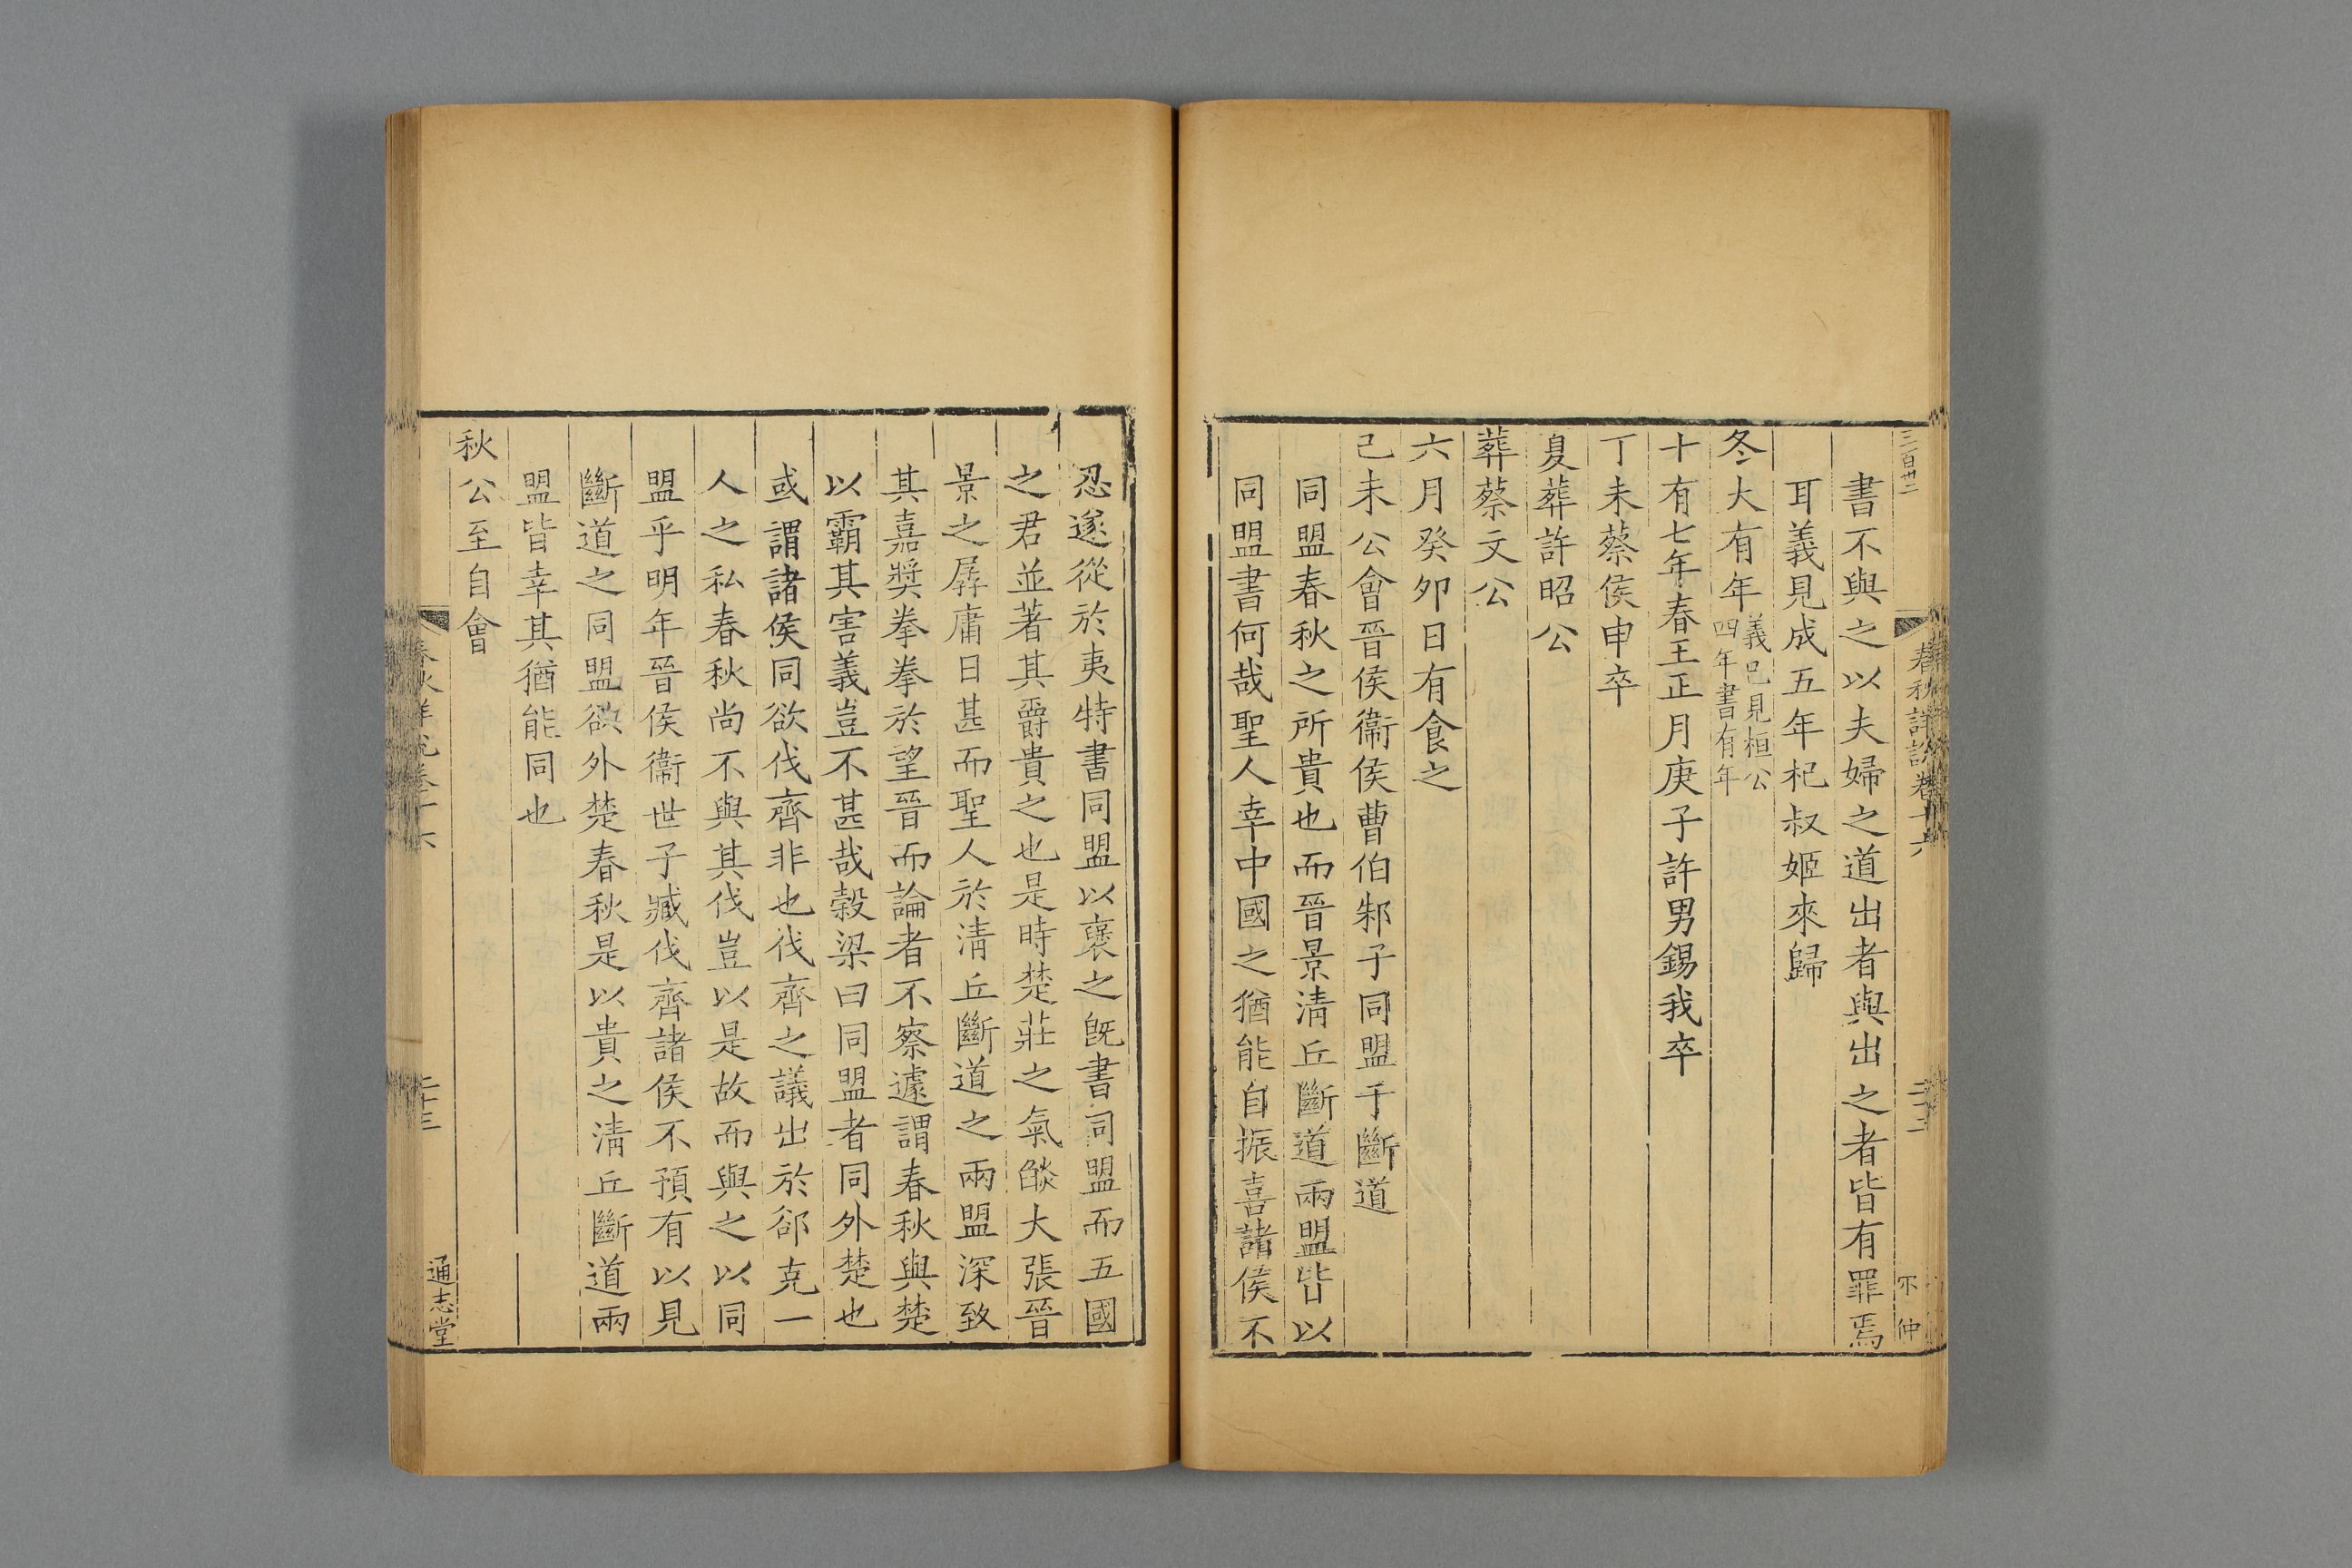 三百卅二
春秋詳說卷十六
仲
書不與之以夫婦之道出者與出之者皆有罪焉
耳義見成五年杞叔姬來歸
冬大有年義已見桓公四年書有年
十有七年春王正月庚子許男錫我卒
丁未蔡侯申卒
夏葬許昭公
葬蔡文公
六月癸卯日有食之
己未公會晉侯衞侯曹伯邾子同盟于斷道
同盟春秋之所貴也而晉景清丘斷道兩盟皆以
同盟書何哉聖人幸中國之猶能自振喜諸侯不
忍遂從於夷特書同盟以襃之旣書同盟而五國
之君並著其爵貴之也是時楚莊之氣燄大張晉
景之孱庸日甚而聖人於清丘斷道之兩盟深致
其嘉奬拳拳於望晉而論者不察遽謂春秋與楚
以霸其害義豈不甚哉榖梁曰同盟者同外楚也
或謂諸侯同欲伐齊非也伐齊之議出於郤克一
人之私春秋尚不與其伐豈以是故而與之以同
盟乎明年晉侯衞世子臧伐齊諸侯不預有以見
斷道之同盟欲外楚春秋是以貴之清丘斷道兩
盟皆幸其猶能同也
秋公至自會
春秋詳說卷十六
二十三
通志堂